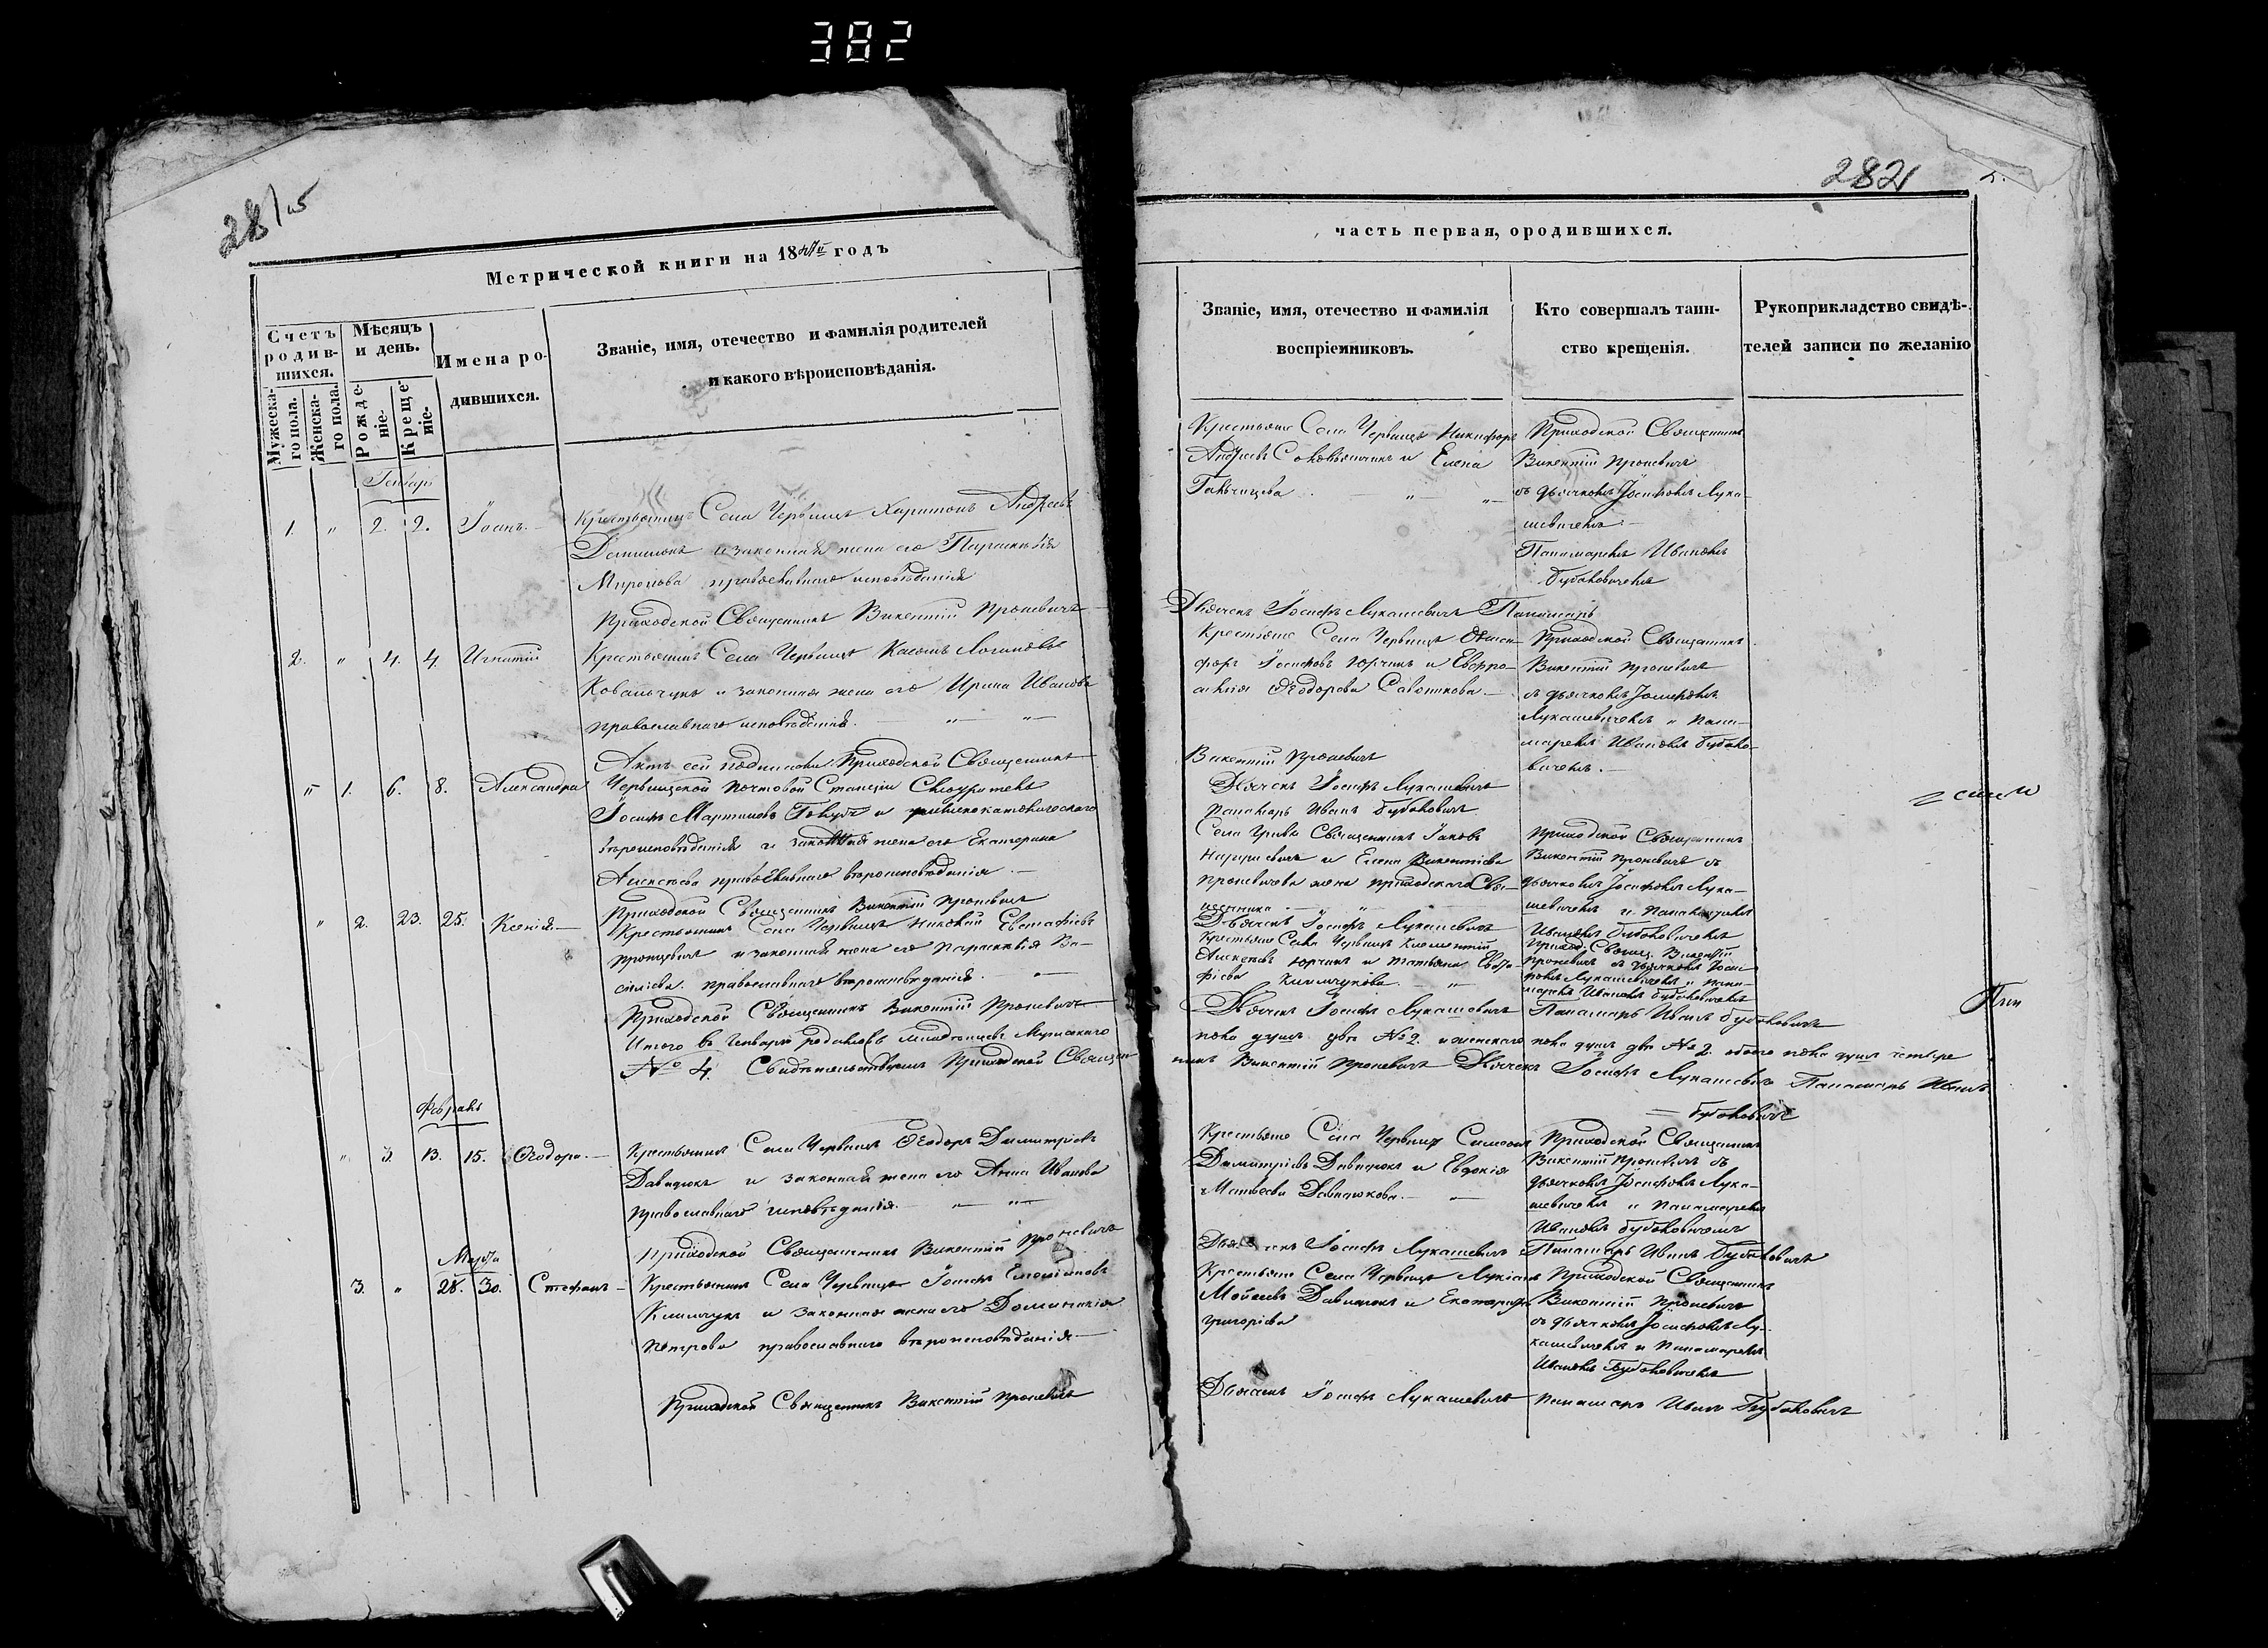 382
281
282
Метрической книги на 1847 годъ
Счетъ родив-
шихся.
Мужеска-
го пола.
Женска-
го пола.
Мѣсяцъ
и день.
Рожде-
ніе.
Креще-
ніе.
Имена ро-
дившихся.
Званіе, имя, отечество и фамилія родителей
и какого вѣроисповѣданія.
Генварь
1. " 2. 2. Іоанъ. Крестьянинъ Села Червищъ Харитонъ Андреевъ
и законная жена его Параскевія
Миронова православнаго исповѣданія
Приходской Священникъ Викентій Проневичъ
2. " 4. 4. Игнатій Крестьянинъ Села Червищъ
Ковальчукъ и законная жена его Ирина Иванова
православнаго исповѣданія. " "
Актъ сей подписали Приходской Священникъ
" 1. 6. 8. Александра Червищской Почтовой Станціи
Іосифъ Мартиновъ и римскокатолическаго
вѣроисповѣданія и законная жена его Екатерина
Алексѣева православнаго вѣроисповѣданія.
Приходской Священникъ Викентій Проневичъ
" 2. 23. 25. Ксенія Крестьянинъ Села Червищъ Евстафіевъ
и законная жена его Параскевія Ва-
силіева православнаго вѣроисповѣданія. "
Приходской Священникъ Викентій Проневичъ
Итого въ Генварѣ родилось младенцевъ Мужескаго
№ 4. Свидѣтельствуемъ Приходской Священ
Февраль
" 3. 13. 15. Ѳеодора. Крестьянинъ Села Червищъ Ѳеодоръ Димитріевъ
Давидюкъ и законная жена его Анна Иванова
Православнаго исповѣданія. " "
Приходской Священникъ Викентій Проневичъ
Марта
3. " 28. 30. Стефанъ Крестьянинъ Села Червищъ Іосифъ
Климчукъ и законная жена его Доминикія
Петрова православнаго вѣроисповѣданія
Приходской Священникъ Викентій Проневичъ
часть первая, ородившихся.
Званіе, имя, отечество и фамилія
воспріемниковъ.
Кто совершалъ таин-
ство крещенія.
Рукоприкладство свидѣ-
телей записи по желанію
Крестьяне Села Червищъ Никифоръ
Андреевъ и Елена
Приходской Священникъ
Викентій Проневичъ
съ дьячкомъ Іосифомъ Лука-
шевичемъ
Панамаремъ Иваномъ
Бубаковичемъ
Дьячекъ Іосифъ Лукашевичъ Панамарь
Крестьяне Села Червищъ
форъ Іосифовъ Юрчикъ и Евфро-
Ѳеодорова
Приходской Священникъ
Викентій Проневичъ
съ дьячкомъ Іосифомъ
Лукашевичемъ и Пана-
маремъ Иваномъ Бубако-
вичемъ.
Викентій Проневичъ
Дьячекъ Іосифъ Лукашевичъ
Панамарь Иванъ Бубаковичъ
Села Священникъ Іаковъ
и Елена Викентіева
Проневичева жена приходскаго Свя-
щенника
Приходской Священникъ
Викентій Проневичъ съ
дьячкомъ Іосифомъ Лука-
шевичемъ и Панамаремъ
Иваномъ Бубаковичемъ
Дьячекъ Іосифъ Лукашевичъ
Крестьяне Села Червищъ Климентій
Алексѣевъ Юрчикъ и Татьяна Евста-
фіева Климчукова. "
Приход. Священ. Викентій
Проневичъ съ дьячкомъ Іоси-
фомъ Лукашевичемъ и Пана-
маремъ Иваномъ Бубаковичемъ
Дьячекъ Іосифъ Лукашевичъ Панамарь Иванъ Бубаковичъ
пола душъ две № 2. и женскаго пола душъ две № 2. обоего пола душъ четыре
никъ Викентій Проневичъ Дьячекъ Іосифъ Лукашевичъ Панамарь Иванъ
Бубаковичъ
Крестьяне Села Червищъ Симеонъ
Димитріевъ Давидюкъ и Евдокія
Матвеева Давидюкова. "
Приходской Священникъ
Викентій Проневичъ съ
дьячкомъ Іосифомъ Лука-
шевичемъ и Панамаремъ
Иваномъ Бубаковичемъ
Дьячекъ Іосифъ Лукашевичъ Панамарь Иванъ Бубаковичъ
Крестьяне Села Червищъ Лукіанъ
Мойсеевъ Давидюкъ и Екатерина
Григоріева
Приходской Священникъ
Викентій Проневичъ
съ дьячкомъ Іосифомъ Лу-
кашевичемъ и Панамаремъ
Иваномъ Бубаковичемъ
Дьячекъ Іосифъ Лукашевичъ Панамарь Иванъ Бубаковичъ